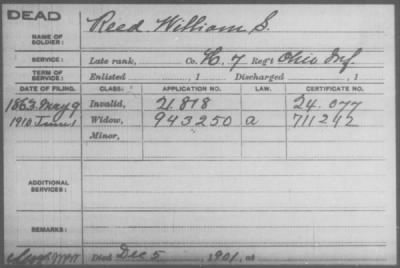 DEAD
NAME OF SOLDIER: Reed William S.
SERVICE: Late rank, Co. H. 7 Reg't Ohio Inf.
TERM OF SERVICE: Enlisted , 1 Discharged , 1
DATE OF FILING. CLASS: APPLICATION NO. LAW. CERTIFICATE NO.
1863 May 9 Invalid, 21.818 24.077
1910 Widow, 943250 a 711242
Minor,
ADDITIONAL SERVICES:
REMARKS:
Died Dec 5 1901, at